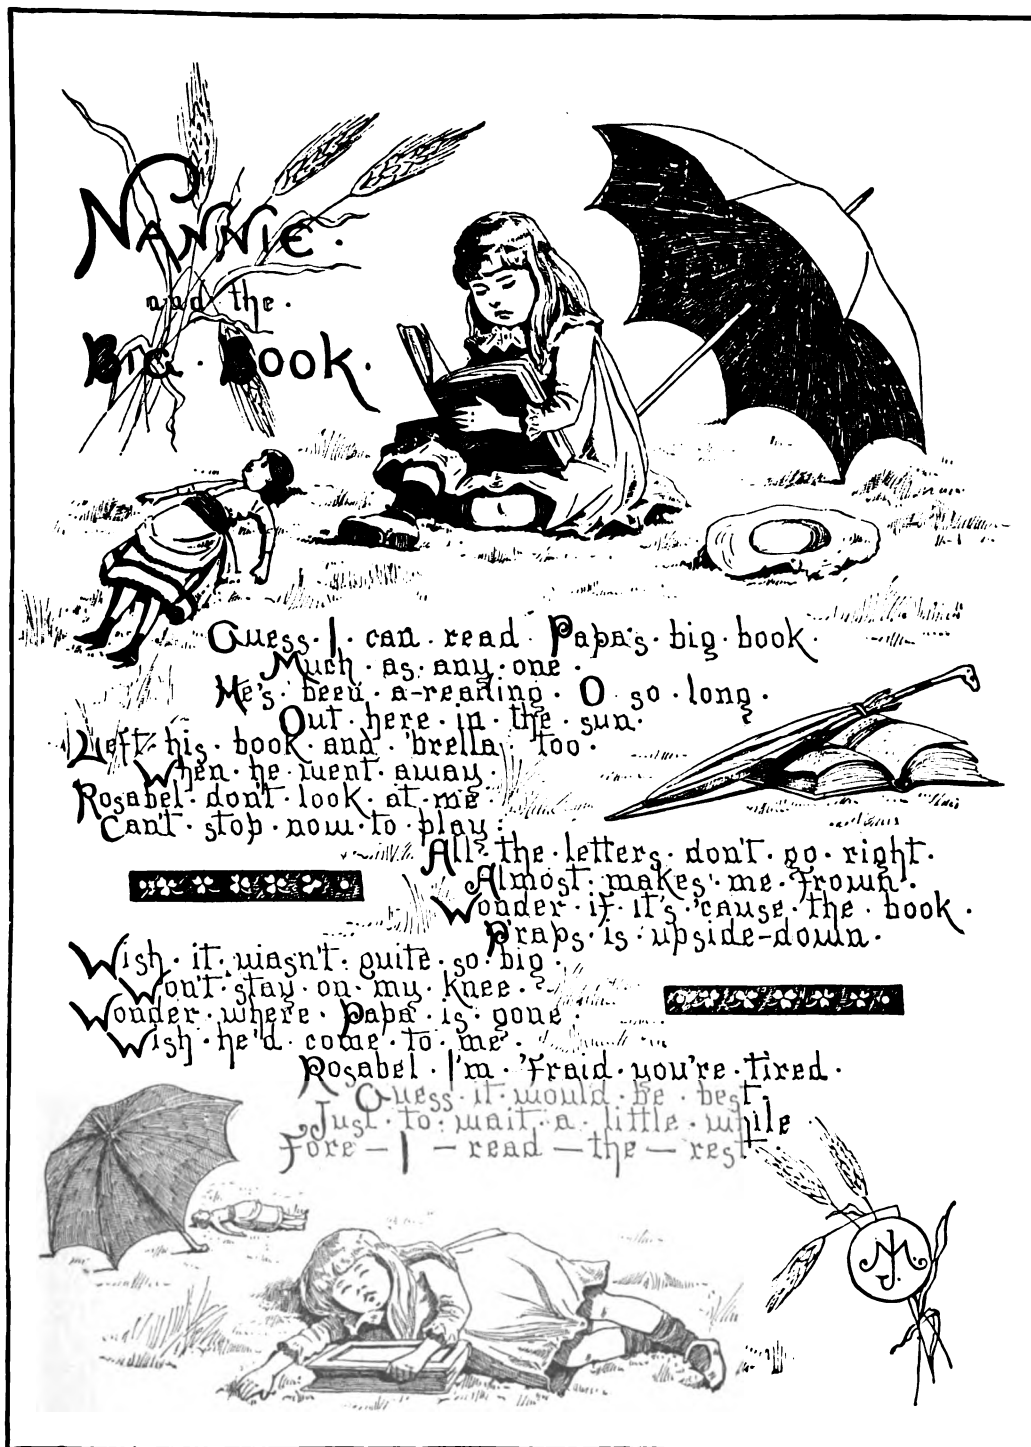 Nannie.
and the.
Big. Book.
Guess. I. can. read. Papa's. big. book.
Much. as. any. one.
He's. been. a-reading. O. so. long.
Out. here. in. the. sun.
Left. his. book. and. 'brella. too.
When. he. went. away.
Rosabel. don't. look. at. me.
Can't. stop. now. to. play.
All. the. letters. don't. go. right.
Almost. makes. me. frown.
Wonder. if. it's. 'cause. the. book.
P'raps. is. upside-down.
Wish. it. wasn't. quite. so. big.
Won't. stay. on. my. knee.
Wonder. where. Papa. is. gone.
Wish. he'd. come. to. me.
Rosabel. I'm. 'fraid. you're. tired.
Guess. it. would. be. best.
Just. to. wait. a. little. while.
Fore—I—read—the—rest.